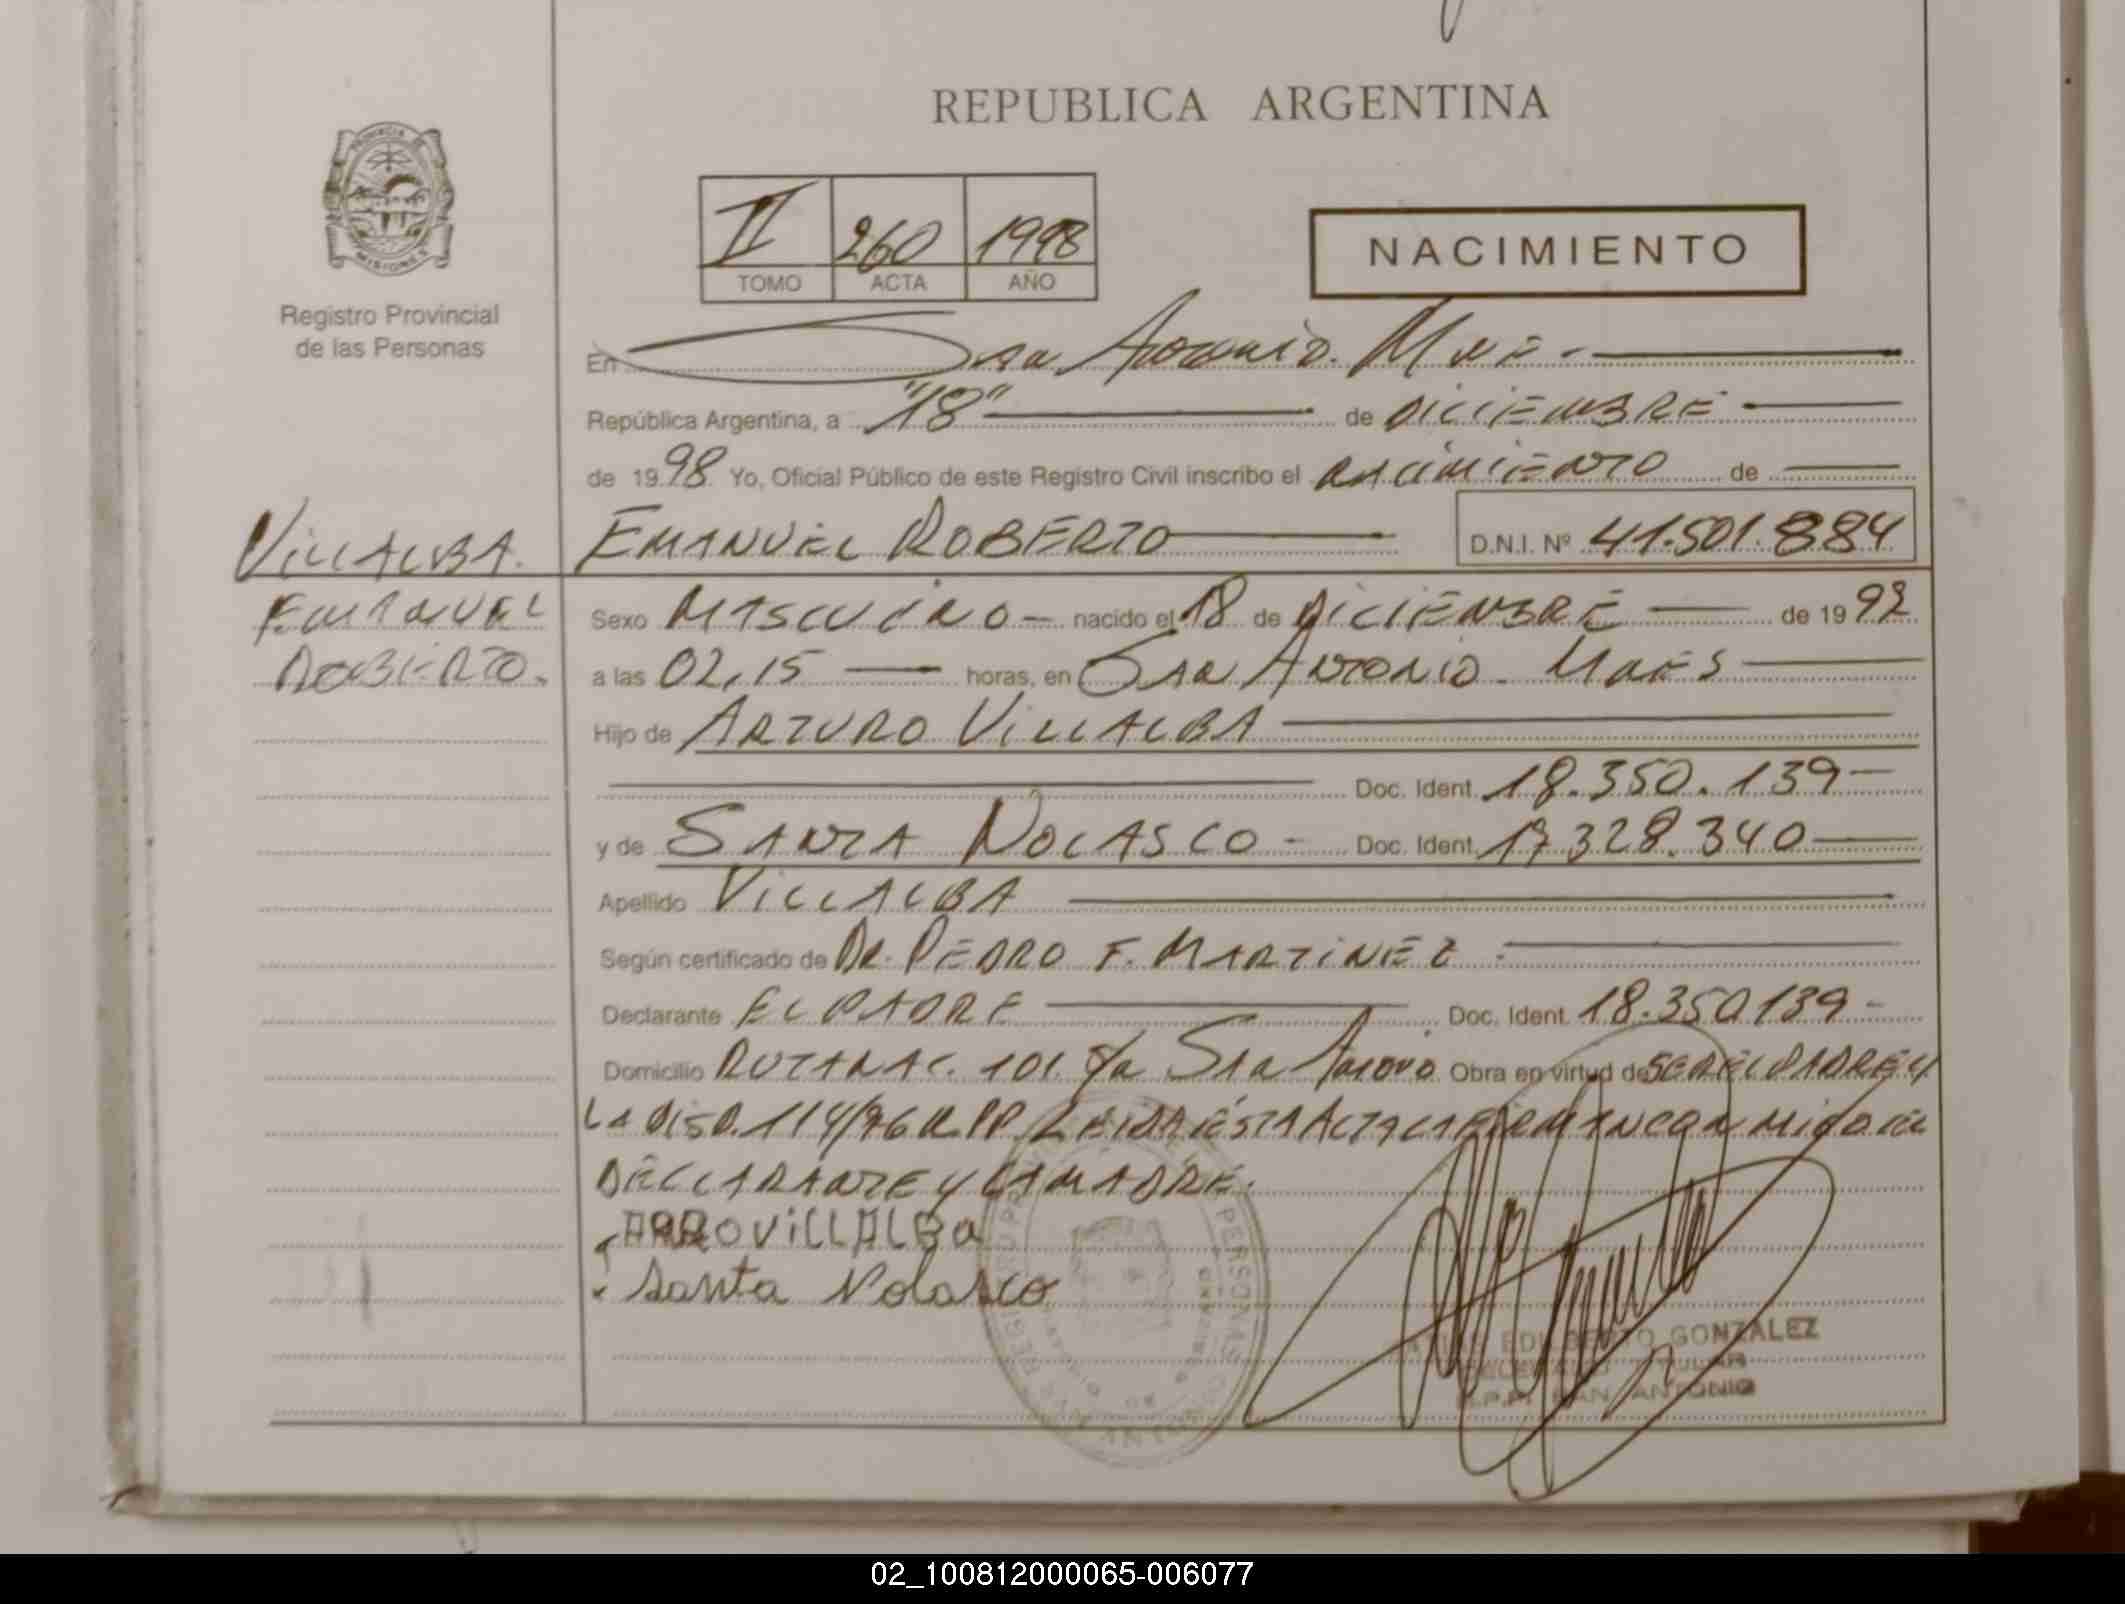 REPUBLICA ARGENTINA
PROVINCIA DE
MISIONES
Registro Provincial
de las Personas
II 260 1998
TOMO ACTA AÑO
NACIMIENTO
En San Antonio. Mnes -
República Argentina, a "18" de DICIEMBRE
de 1998 Yo, Oficial Público de este Registro Civil inscribo el NACIMIENTO de
VILLALBA. EMANUEL ROBERTO D.N.I. Nº 41.501.884
EMANUEL
ROBERTO.
Sexo MASCULINO - nacido el 18 de DICIEMBRE de 1998
a las 02,15 horas, en San ANTONIO. Mnes
Hijo de ARTURO VILLALBA
Doc. Ident. 18.350.139 -
y de SANTA NOLASCO - Doc. Ident. 17.328.340
Apellido VILLALBA
Según certificado de DR. PEDRO F. MARTINEZ
Declarante EL PADRE Doc. Ident. 18.350139 -
Domicilio RUTA NAC. 101. S/n San Antonio Obra en virtud de SER EL PADRE Y
La DISP. 114/76 RPP. LEIDA ESTA ACTA LA FIRMAN CON MIGO EL
DECLARANTE Y LA MADRE.
VILLALBA
Santa Nolasco
EDILBERTO GONZALEZ
TITULAR
R.P.P. SAN ANTONIO
02_100812000065-006077